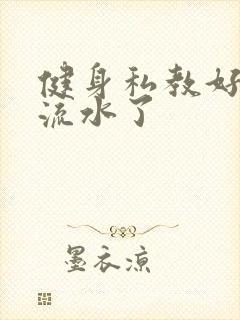 健身私教好
流水了
墨衣凉